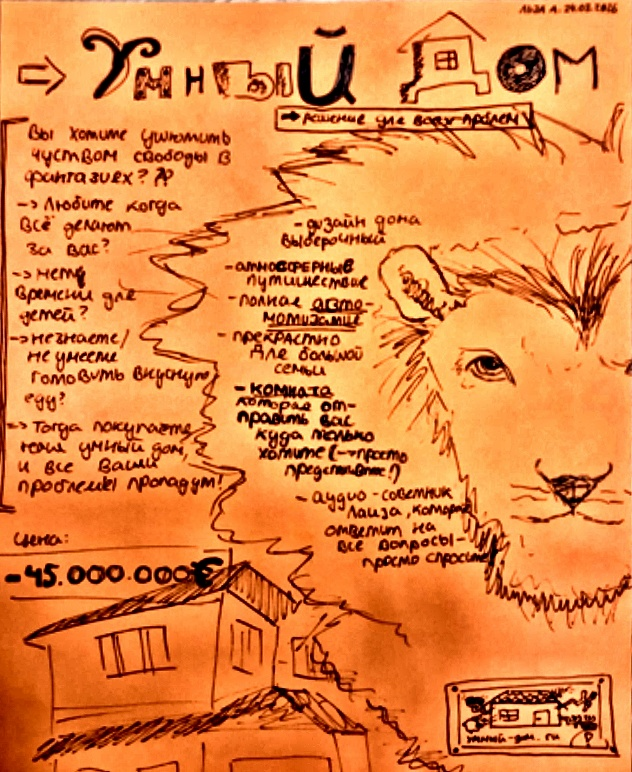 ЛЬЗА А. 24.03.2026
УМНЫЙ ДОМ
решение для всех проблем
Вы хотите ушютить
чуством свободы в
фантазиех?
-> Любите когда
всё делают
за вас?
-> нету
времени для
детей?
-> незнаете/
не умеете
готовить вкусную
еду?
-> Тогда покупаете
наш умный дом,
и все ваши
проблемы пропадут!
Цена:
-45.000.000€
- дизайн дома
выберочный
- атмосферныв
путишествие
- полная авто-
мотизация
- прекрастно
для большой
семьи
- комната
которая от-
править вас
куда только
хотите (->просто
представтье!)
- аудио-советник
Лаиза, которая
ответит на
все вопросы-
просто спросите!
умный-дом. ru